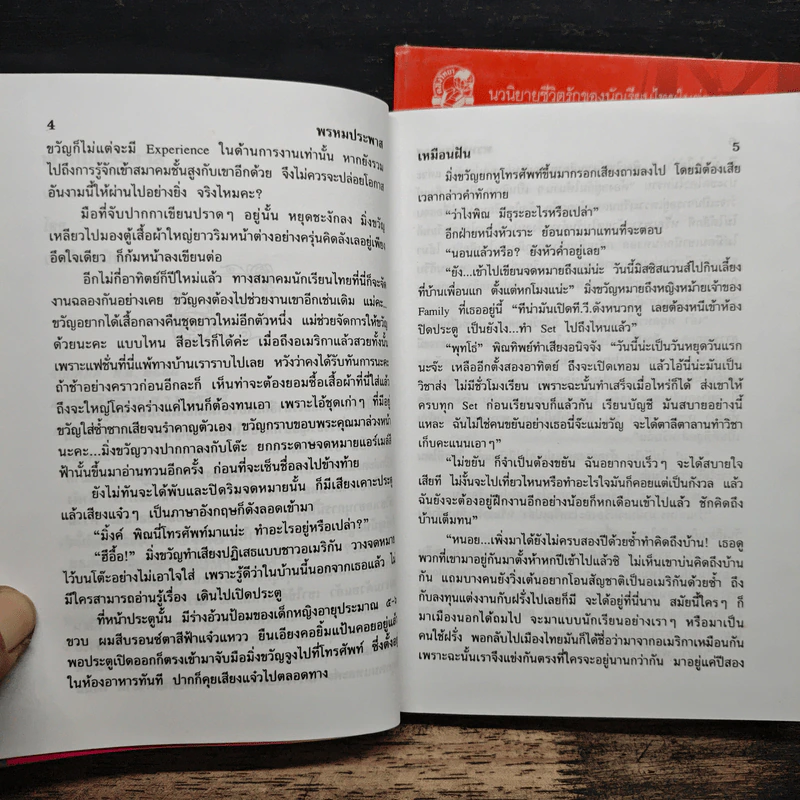 นวนิยายชีวิตรักของนักเรียนไทยใน
4
พรหมประพาส
ขวัญก็ไม่แต่จะมี Experience ในด้านการงานเท่านั้น หากยังรวม
ไปถึงการรู้จักเข้าสมาคมชั้นสูงกับเขาอีกด้วย จึงไม่ควรจะปล่อยโอกาส
อันงามนี้ให้ผ่านไปอย่างยิ่ง จริงไหมคะ?
มือที่จับปากกาเขียนปราดๆ อยู่นั้น หยุดชะงักลง มิ่งขวัญ
เหลียวไปมองตู้เสื้อผ้าใหญ่ยาวริมหน้าต่างอย่างครุ่นคิดลังเลอยู่เพียง
อึดใจเดียว ก็ก้มหน้าลงเขียนต่อ
อีกไม่กี่อาทิตย์ก็ปีใหม่แล้ว ทางสมาคมนักเรียนไทยที่นี่ก็จะจัด
งานฉลองกันอย่างเคย ขวัญคงต้องไปช่วยงานเขาอีกเช่นเดิม แม่คะ..
ขวัญอยากได้เสื้อกลางคืนชุดยาวใหม่อีกตัวหนึ่ง แม่ช่วยจัดการให้ขวัญ
ด้วยนะคะ แบบไหน สีอะไรก็ได้ค่ะ เมื่อถึงอเมริกาแล้วสวยทั้งนั้น
เพราะแฟชั่นที่นี่แพ้ทางบ้านเราราบไปเลย หวังว่าคงได้รับทันการนะคะ
ถ้าช้าอย่างคราวก่อนอีกละก็ เห็นท่าจะต้องยอมซื้อเสื้อผ้าที่นี่ใส่แล้ว
ถึงจะใหญ่โคร่งคร่างแค่ไหนก็ต้องทนเอา เพราะไอ้ชุดเก่าๆ ที่มีอยู่
ขวัญใส่ซ้ำซากเสียจนรำคาญตัวเอง ขวัญกราบขอบพระคุณมาล่วงหน้า
นะคะ...มิ่งขวัญวางปากกาลงกับโต๊ะ ยกกระดาษจดหมายแอร์เมล์สี
ฟ้านั้นขึ้นมาอ่านทวนอีกครั้ง ก่อนที่จะเซ็นชื่อลงไปข้างท้าย
ยังไม่ทันจะได้พับและปิดริมจดหมายนั้น ก็มีเสียงเคาะประตู
แล้วเสียงแจ๋วๆ เป็นภาษาอังกฤษก็ดังลอดเข้ามา
“มิ้งค์ พิณนี่โทรศัพท์มาแน่ะ ทำอะไรอยู่หรือเปล่า?”
“ฮือื้อ!” มิ่งขวัญทำเสียงปฏิเสธแบบชาวอเมริกัน วางจดหมาย
ไว้บนโต๊ะอย่างไม่เอาใจใส่ เพราะรู้ดีว่าในบ้านนี้นอกจากเธอแล้ว ไม่
มีใครสามารถอ่านรู้เรื่อง เดินไปเปิดประตู
ที่หน้าประตูนั้น มีร่างอ้วนป้อมของเด็กหญิงอายุประมาณ ๕-๖
ขวบ ผมสีบรอนซ์ตาสีฟ้าแจ๋วแหวว ยืนเอียงคอยิ้มแป้นคอยอยู่แล้ว
พอประตูเปิดออกก็ตรงเข้ามาจับมือมิ่งขวัญจูงไปที่โทรศัพท์ ซึ่งตั้งอยู่
ในห้องอาหารทันที ปากก็คุยเสียงแจ๋วไปตลอดทาง
เหมือนฝัน
5
มิ่งขวัญยกหูโทรศัพท์ขึ้นมากรอกเสียงถามลงไป โดยมิต้องเสีย
เวลากล่าวคำทักทาย
“ว่าไงพิณ มีธุระอะไรหรือเปล่า”
อีกฝ่ายหนึ่งหัวเราะ ย้อนถามมาแทนที่จะตอบ
“นอนแล้วหรือ? ยังหัวค่ำอยู่เลย”
“ยัง...เข้าไปเขียนจดหมายถึงแม่น่ะ วันนี้มิสซิสแวนส์ไปกินเลี้ยง
ที่บ้านเพื่อนแก ตั้งแต่หกโมงแน่ะ” มิ่งขวัญหมายถึงหญิงหม้ายเจ้าของ
Family ที่เธออยู่นี้ “ทีน่ามันเปิดที.วี.ดังหนวกหู เลยต้องหนีเข้าห้อง
ปิดประตู เป็นยังไง...ทำ Set ไปถึงไหนแล้ว”
“พุทโธ่” พิณทิพย์ทำเสียงอนิจจัง “วันนี้น่ะเป็นวันหยุดวันแรก
นะจ๊ะ เหลืออีกตั้งสองอาทิตย์ ถึงจะเปิดเทอม แล้วไอ้นี่น่ะมันเป็น
วิชาส่ง ไม่มีชั่วโมงเรียน เพราะฉะนั้นทำเสร็จเมื่อไหร่ก็ได้ ส่งเขาให้
ครบทุก Set ก่อนเรียนจบก็แล้วกัน เรียนบัญชี มันสบายอย่างนี้
แหละ ฉันไม่ใช่คนขยันอย่างเธอนี่จ๊ะแม่ขวัญ จะได้ตาลีตาลานทำวิชา
เก็บคะแนนเอาๆ”
“ไม่ขยัน ก็จำเป็นต้องขยัน ฉันอยากจบเร็วๆ จะได้สบายใจ
เสียที ไม่งั้นจะไปเที่ยวไหนหรือทำอะไรใจมันก็คอยแต่เป็นกังวล แล้ว
ฉันยังจะต้องอยู่ฝึกงานอีกอย่างน้อยก็หกเดือนเข้าไปแล้ว ชักคิดถึง
บ้านเต็มทน”
“หนอย...เพิ่งมาได้ยังไม่ครบสองปีด้วยซ้ำทำคิดถึงบ้าน! เธอดู
พวกที่เขามาอยู่กันมาตั้งห้าหกปีเข้าไปแล้วซิ ไม่เห็นเขาบ่นคิดถึงบ้าน
กัน แถมบางคนยังวิ่งเต้นอยากโอนสัญชาติเป็นอเมริกันด้วยซ้ำ ถึง
กับลงทุนแต่งงานกับฝรั่งไปเลยก็มี จะได้อยู่ที่นี่นาน สมัยนี้ใครๆ ก็
มาเมืองนอกได้ถมไป จะมาแบบนักเรียนอย่างเราๆ หรือมาเป็น
คนใช้ฝรั่ง พอกลับไปเมืองไทยมันก็ได้ชื่อว่ามาจากอเมริกาเหมือนกัน
เพราะฉะนั้นเราจึงแข่งกันตรงที่ใครจะอยู่นานกว่ากัน มาอยู่แค่ปีสอง